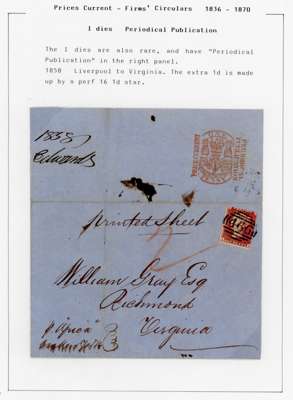 Prices Current - Firms' Circulars 1836 - 1870
1 dies Periodical Publication
The 1 dies are also rare, and have "Periodical
Publication" in the right panel.
1858 Liverpool to Virginia. The extra 1d is made
up by a perf 16 1d star.
1858
Edwards
PRICE CURRENT
Printed Sheet
William Gray Esq
Richmond
Virginia
p. "Africa"